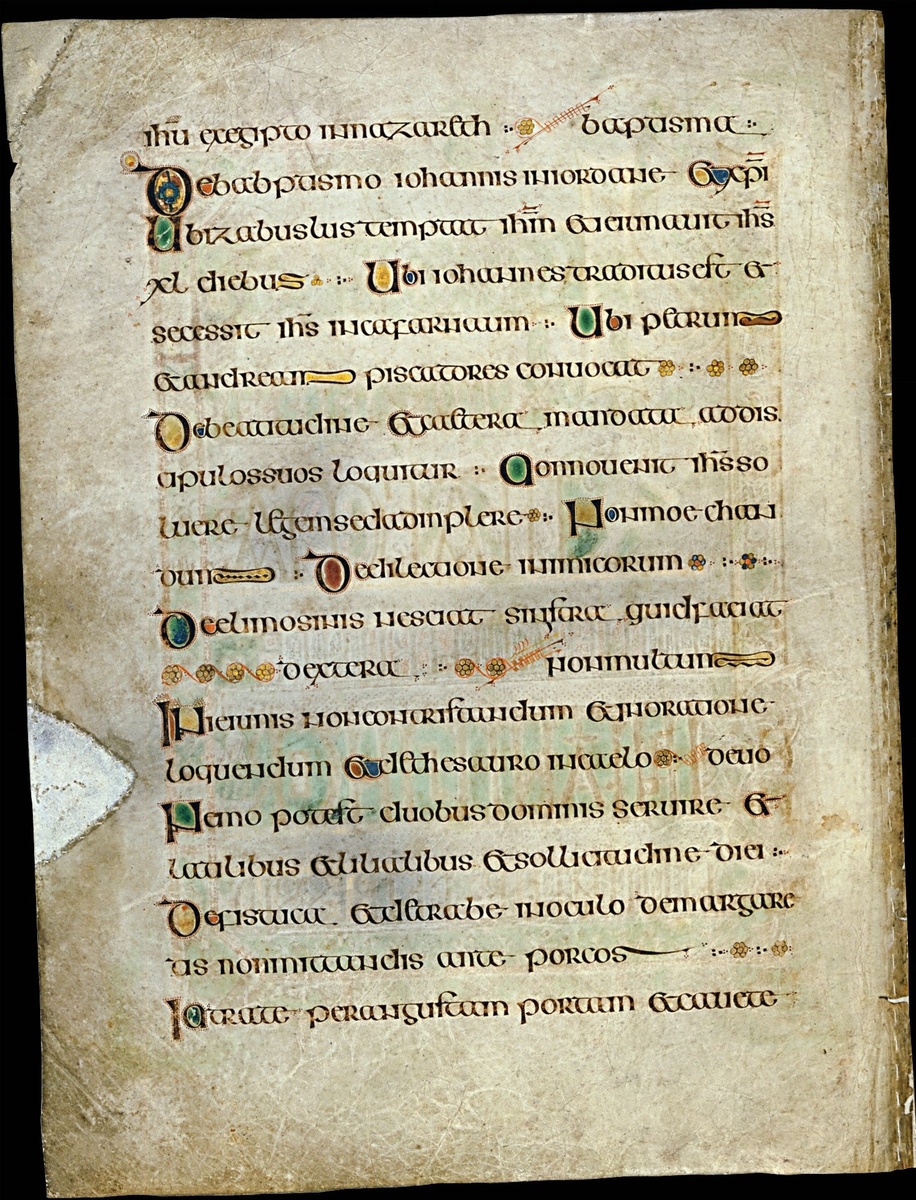 ihū exegipto innazareth baptisma
Debabtismo iohannis iniordane Et xp̄i
Ubizabuluſ temptat ihm̄ Etieiunauit ihs̄
xl diebus Ubi iohannes traditus est et
secessit ihs̄ incafarnaum Ubi petrum
Etandream piscatores conuocat
Debeatitudine Etcaetera mandata addis
cipulossuos loquitur Qonnouenit ihs̄ so
luere legemsedadimplere Nonmoechan
dum Dedilectione inimicorum
Deelimosinis nesciat sinistra quidfaciat
dextera nonmultum
Inieiunis noncontristandum Etinoratione
loquendum Etdethesauro incaelo deuo
Nemo potest duobusdominis seruire Et
latilibus etliliabilus Etsollicitudine diei
Defistuca Etdetrabe inoculo demargare
tis nonmittandis ante porcos
Intrate perangustam portam Etcauete